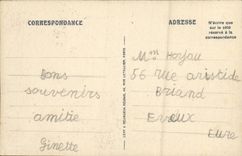 CORRESPONDANCE
ADRESSE
N'écrire que
sur le côté
réservé à la
correspondance
Bons
souvenirs
amitie
Ginette
Mme
56 rue aristide
Briand
Evreux
Eure